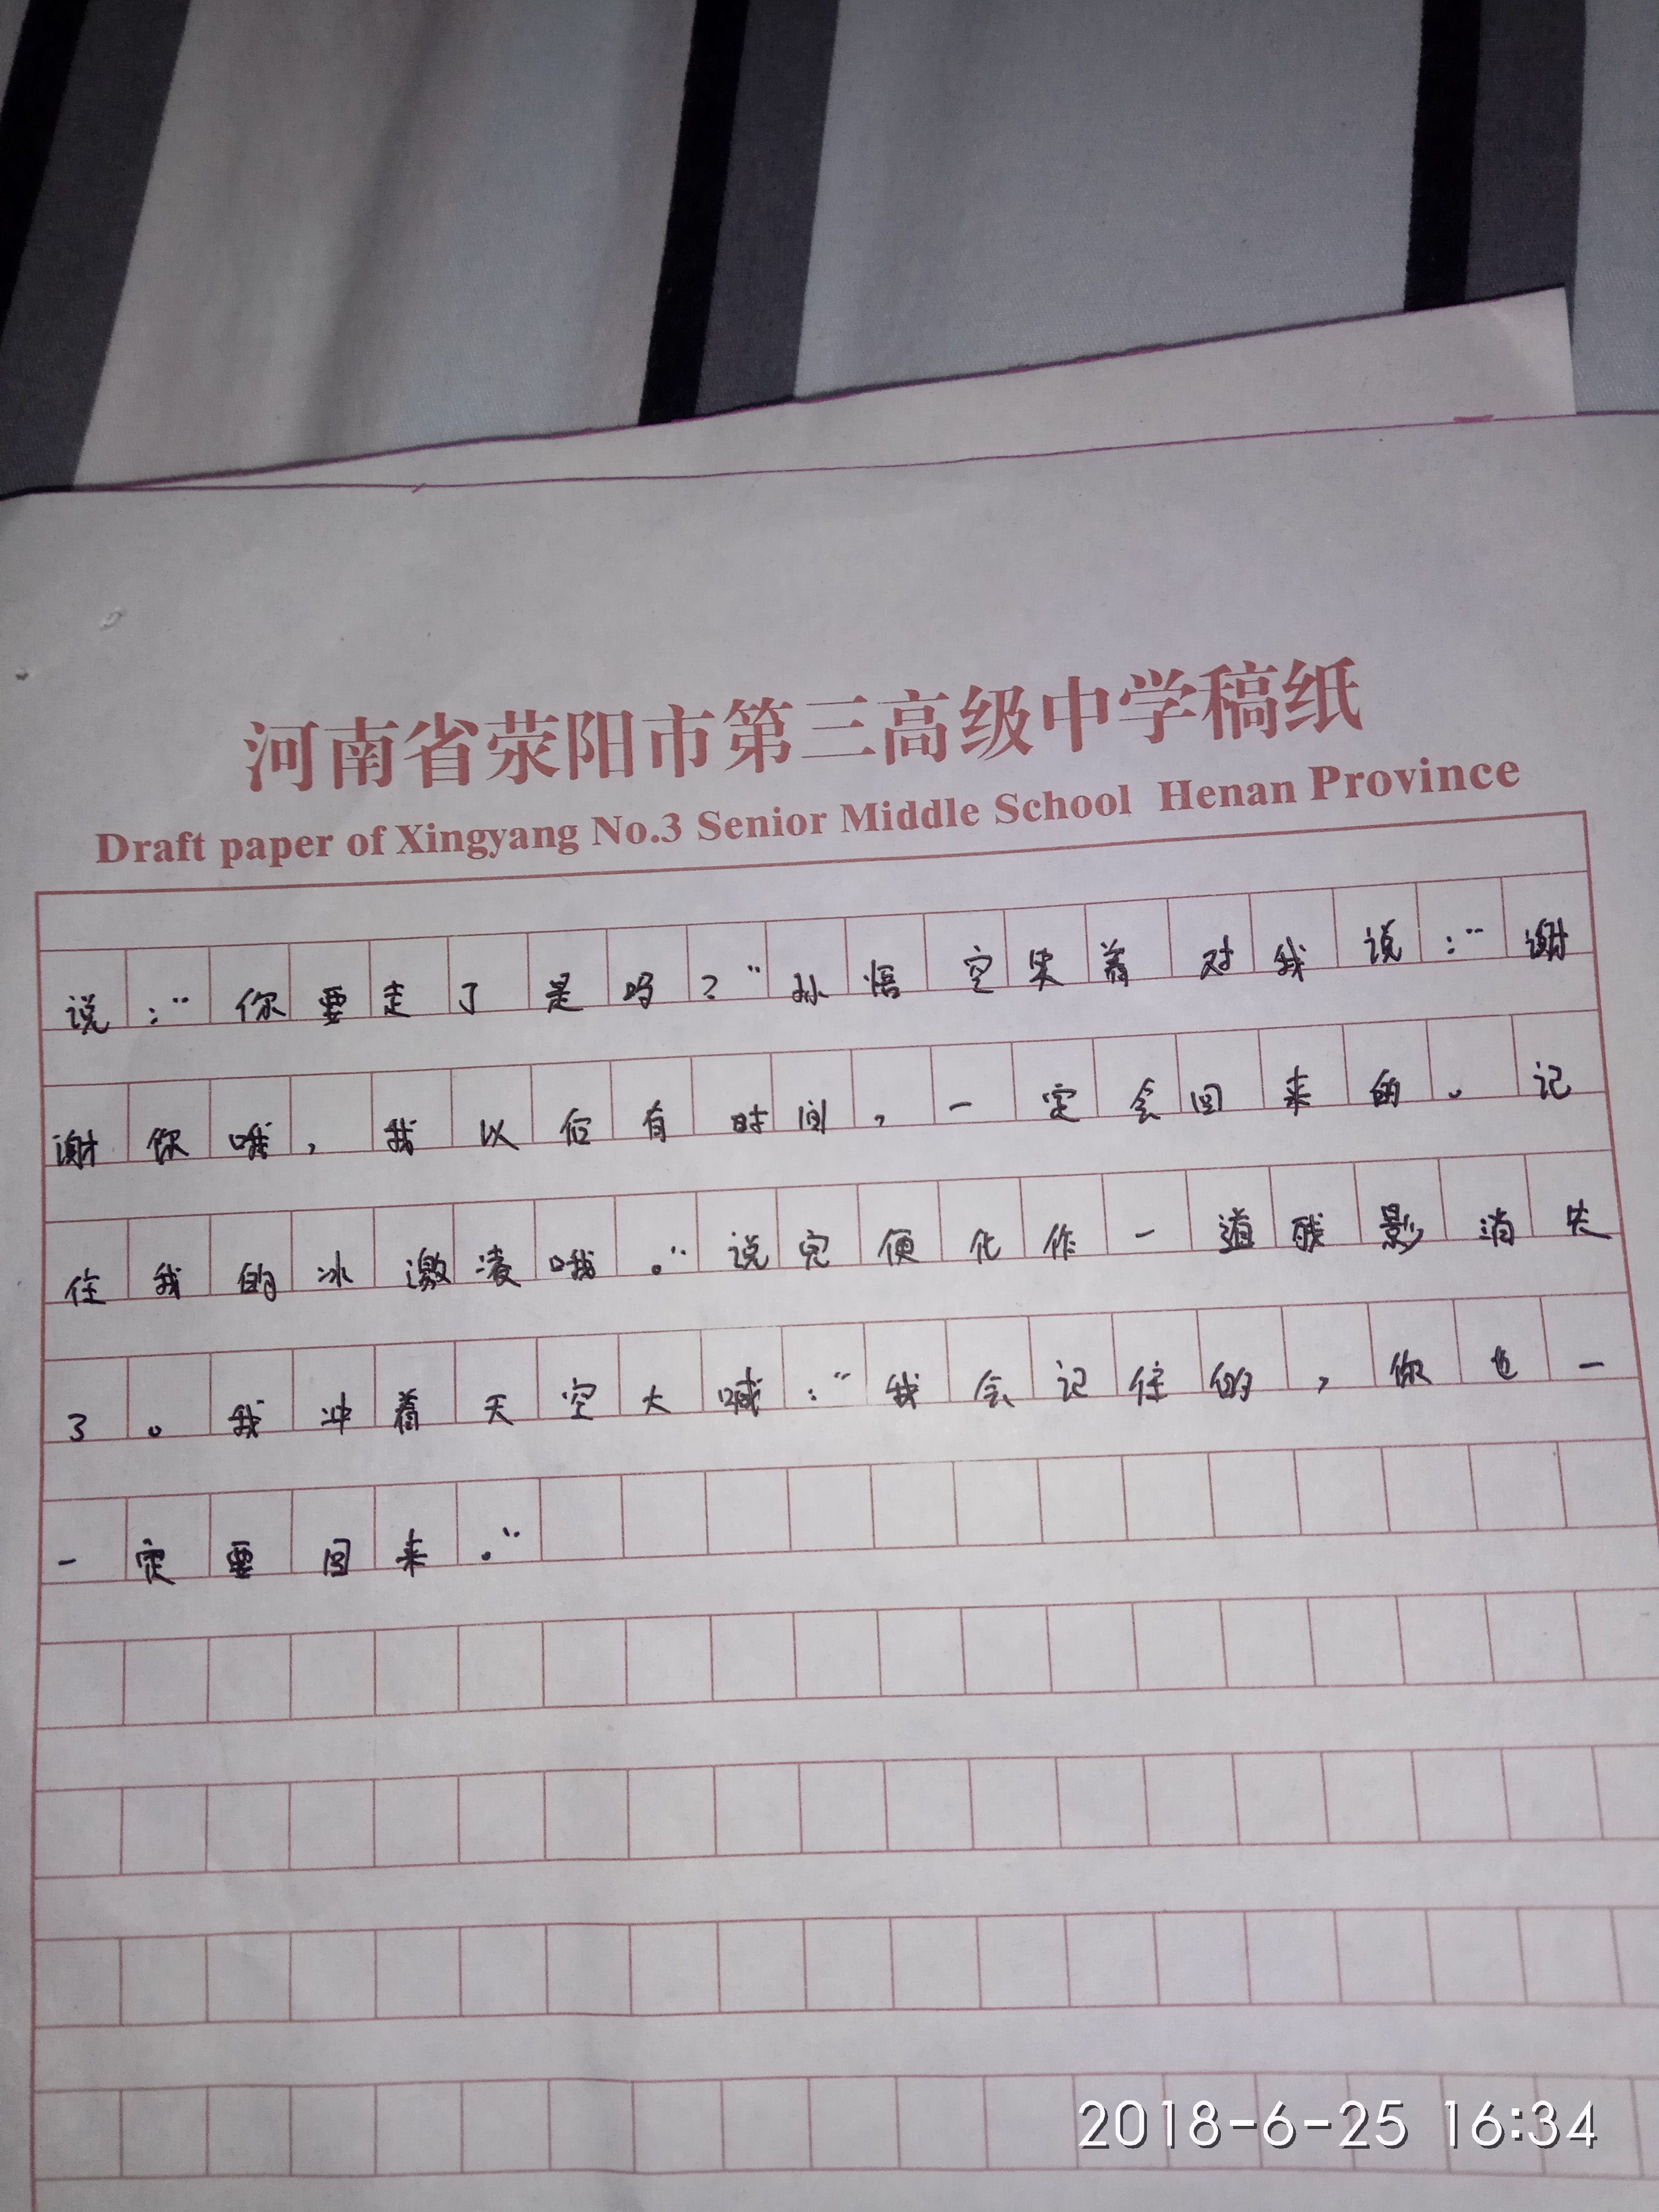 河南省荥阳市第三高级中学稿纸
Draft paper of Xingyang No.3 Senior Middle School Henan Province
说：“你要走了是吗？”孙悟空笑着对我说：“谢
谢你哦，我以后有时间，一定会回来的。记
住我的冰激凌哦。”说完便化作一道残影消失
了。我冲着天空大喊：“我会记住的，你也一
一定要回来。”
2018-6-25 16:34